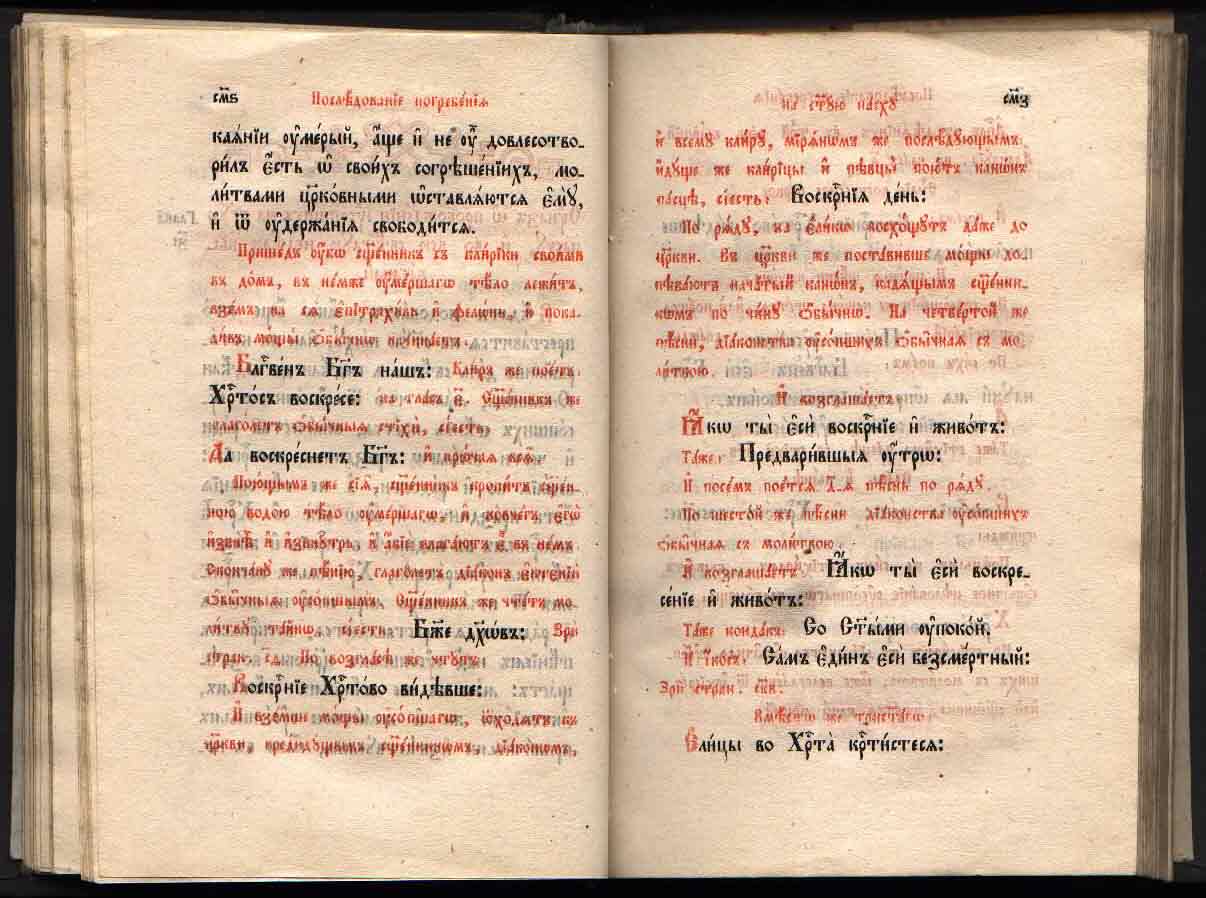 см҃ѕ
Послѣ́дованїе погребе́нїѧ
ка́ѧнїи ᲂу҆ме́рый, а҆́ще и҆ не ᲂу҆̀ довлесотво-
ри́лъ є҆́сть ѡ҆ свои́хъ согрѣше́нїихъ, мо-
ли́твами цр҃ко́вными ѡ҆ставлѧ́ютсѧ є҆мꙋ̀,
и҆ ѿ ᲂу҆держа́нїѧ свободи́тсѧ.
Прише́дъ ᲂу҆̀бѡ сщ҃е́нникъ съ кли́рики свои́ми
въ до́мъ, въ не́мже ᲂу҆ме́ршагѡ тѣ́ло лежи́тъ,
взе́мъ на сѧ̀ є҆пїтрахи́ль и҆ фело́нь, и҆ пока-
ди́въ мо́щы, ѻ҆бы́чнѡ начина́етъ:
Блг҃ве́нъ Бг҃ъ на́шъ: Кли́ръ же пое́тъ:
Хрⷭ҇то́съ воскре́се: на гла́съ є҃. Сщ҃е́нникъ же
глаго́летъ ѻ҆бы́чныѧ стїхѝ, сїе́сть,
Да воскре́снетъ Бг҃ъ: и҆ прѡ́чаѧ всѧ̑.
Пою́щымъ же сїѧ̑, сщ҃е́нникъ кропи́тъ сщ҃е́н-
ною водо́ю тѣ́ло ᲂу҆ме́ршагѡ, и҆ ковче́гъ є҆гѡ̀
и҆звнѣ̀ и҆ внꙋтрь, и҆ а҆́бїе влага́ютъ є҆̀ въ не́мъ.
Сконча́нꙋ же пѣ́нїю, глаго́летъ дїа́конъ є҆ктенїѝ
ѻ҆бы́чныѧ ᲂу҆со́пшымъ. Сще́нникъ же чте́тъ мо-
ли́твꙋ та́йнѡ, сїе́сть: Бж҃е дꙋхѡ́въ: Зрѝ
стран. По во́згласѣ же чтꙋ́тъ:
Воскрⷭ҇нїе Хрⷭ҇то́во ви́дѣвше:
И҆ взе́мше мо́щы ᲂу҆со́пшагѡ, ѿхо́дѧтъ къ
цр҃кви, предидꙋ́щымъ сщ҃е́нникѡмъ, дїа́конѡмъ,
на ст҃ꙋ́ю па́схꙋ
см҃з
и҆ всемꙋ̀ кли́рꙋ, мїрѧ́нѡмъ же послѣ́дꙋющымъ.
И҆дꙋ́ще же кли́рїцы и҆ пѣвцы̀ пою́тъ кано́нъ
па́сцѣ, сїе́сть: Воскрⷭ҇нїѧ де́нь:
По рѧ́дꙋ, на є҆ли́кѡ восхо́щꙋтъ да́же до
цр҃кви. Въ цр҃кви же поста́вивше мо́щы до-
пѣва́ютъ нача́тый кано́нъ, кадѧ́щымъ сщ҃е́нни-
кѡмъ по чи́нꙋ ѻ҆бы́чнѡ. На четве́ртой же
пѣ́сни, дїа́конства ᲂу҆со́пшихъ ѻ҆бы̑чнаѧ съ мо-
ли́твою.
И҆ возглаша́етъ:
Ꙗ҆́кѡ ты̀ є҆сѝ воскрⷭ҇нїе и҆ живо́тъ:
Та́же: Предвари́вшыѧ ᲂу҆́трѡ:
И҆ посе́мъ пое́тсѧ д҃-ѧ пѣ́снь по рѧ́дꙋ.
По шесто́й же пѣ́сни дїа́конства ᲂу҆со́пшихъ
ѻ҆бы̑чнаѧ съ моли́твою.
И҆ возглаша́етъ: Ꙗ҆́кѡ ты̀ є҆сѝ воскре-
се́нїе и҆ живо́тъ:
Та́же конда́къ: Со Ст҃ы́ми ᲂу҆поко́й.
И҆ і҆́косъ: Са́мъ є҆ди́нъ є҆сѝ безсме́ртный:
Зрѝ стран.
Вмѣ́стѡ же трист҃а́гѡ
Є҆ли́цы во Хрⷭ҇та̀ крⷭ҇ти́стесѧ: